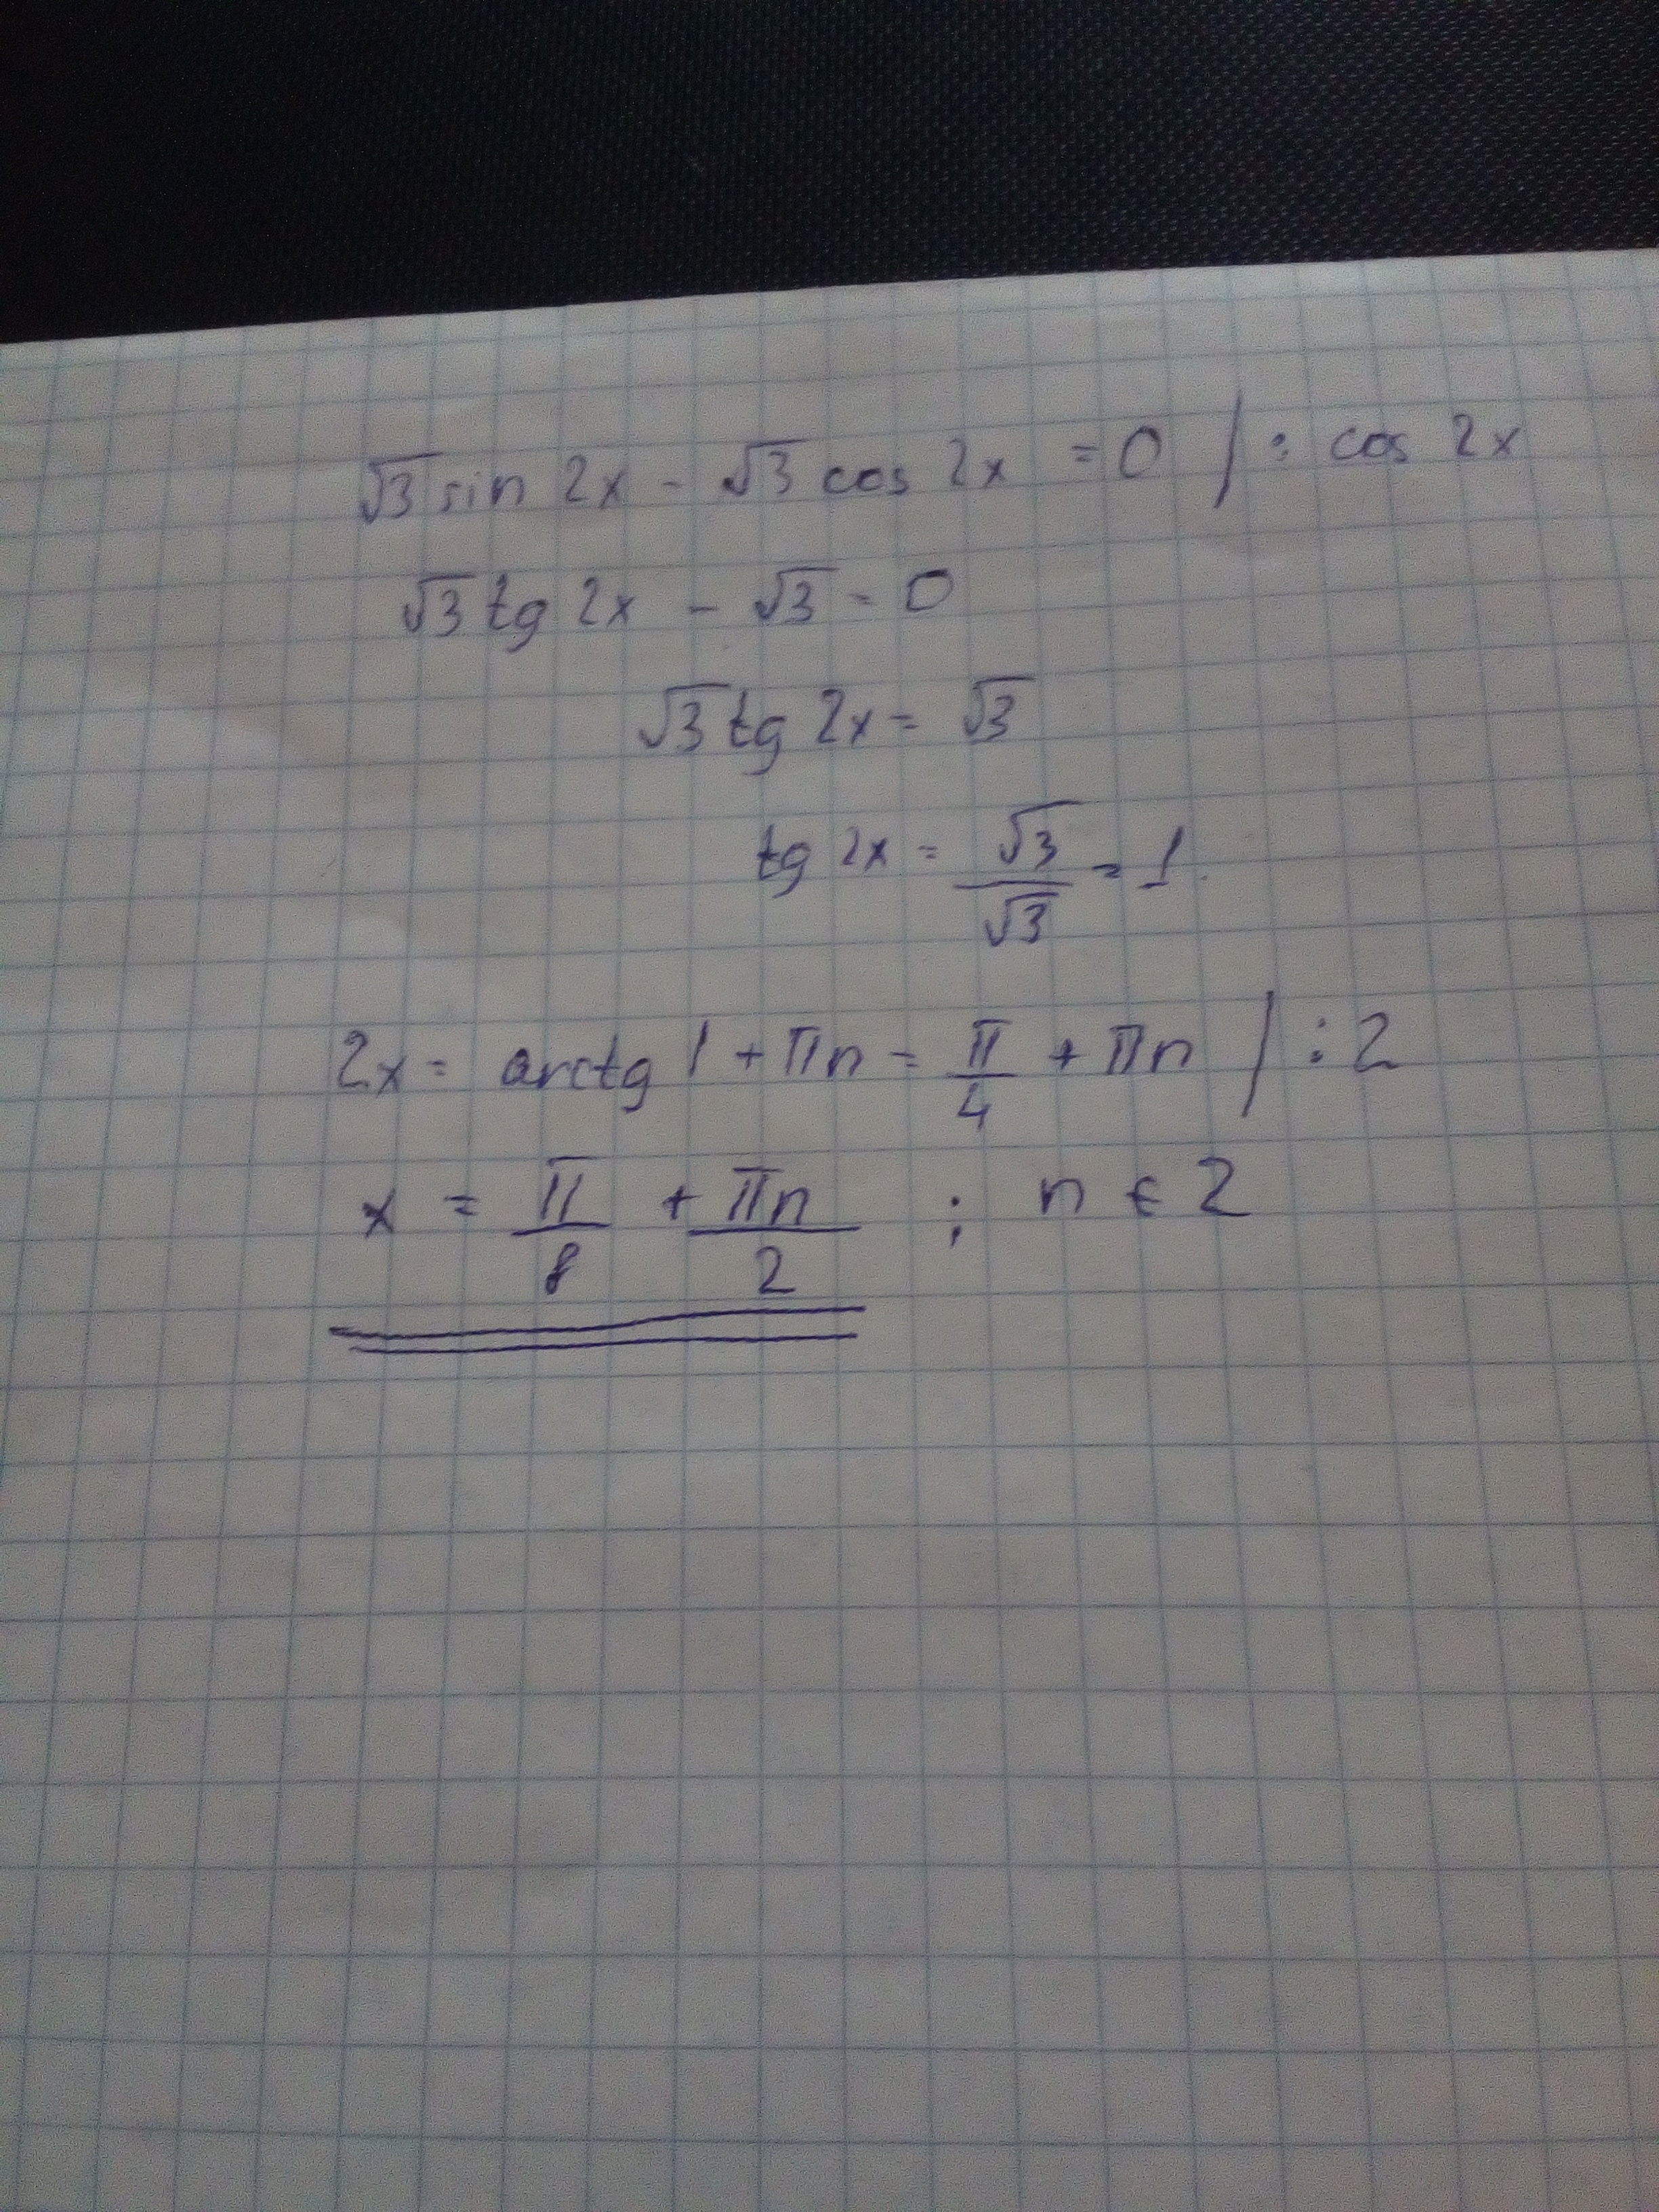 √3 sin 2x - √3 cos 2x = 0 / : cos 2x
√3 tg 2x - √3 = 0
√3 tg 2x = √3
tg 2x = √3/√3 = 1.
2x = arctg 1 + πn = π/4 + πn / : 2
x = π/8 + πn/2 ; n ∈ Z